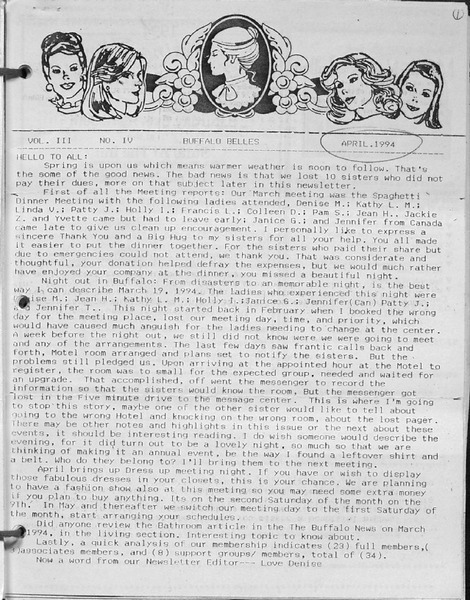 1
VOL. III NO. IV BUFFALO BELLES APRIL.1994
HELLO TO ALL:
Spring is upon us which means warmer weather is soon to follow. That's
the some of the good news. The bad news is that we lost 10 sisters who did not
pay their dues, more on that subject later in this newsletter.
First of all the Meeting reports: Our March meeting was the Spaghetti
Dinner Meeting with the following ladies attended, Denise M.; Kathy L. M.;
Linda V.; Patty J.; Holly I.; Francis L.; Colleen D.; Pam S.; Jean H.. Jackie
Z. and Yvette came but had to leave early; Janice G.; and Jennifer from Canada
came late to give us clean up encouragement. I personally like to express a
sincere Thank You and a Big Hug to my sisters for all your help. You all made
it easier to put the dinner together. For the sisters who paid their share but
due to emergencies could not attend, we thank you. That was considerate and
thoughtful, your donation helped defray the expenses, but we would much rather
have enjoyed your company at the dinner, you missed a beautiful night.
Night out in Buffalo: From disasters to an memorable night, is the best
way I can describe March 19, 1994. The ladies who experienced this night were
ise M.; Jean H.; Kathy L. M.; Holly I.;Janice G.; Jennifer(Can) Patty J.;
Jennifer T.. This night started back in February when I booked the wrong
day for the meeting place, lost our meeting day, time, and priority, which
would have caused much anguish for the ladies needing to change at the center.
A week before the night out, we still did not know were we were going to meet
and any of the arrangements. The last few days saw frantic calls back and
forth, Motel room arranged and plans set to notify the sisters. But the
problems still pledged us. Upon arriving at the appointed hour at the Motel to
register, the room was to small for the expected group, needed and waited for
an upgrade. That accomplished, off went the messenger to record the
information so that the sisters would know the room, But the messenger got
lost in the Five minute drive to the message center. This is where I'm going
to stop this story, maybe one of the other sister would like to tell about
going to the wrong Hotel and knocking on the wrong room, about the lost pager.
There may be other notes and highlights in this issue or the next about these
events, it should be interesting reading. I do wish someone would describe the
evening, for it did turn out to be a lovely night, so much so that we are
thinking of making it an annual event, be the way I found a leftover shirt and
a belt. Who do they belong to? I'll bring them to the next meeting.
April brings up Dress up meeting night. If you have or wish to display
those fabulous dresses in your closets, this is your chance. We are planning
to have a fashion show also at this meeting so you may need some extra money
if you plan to buy anything. Its on the second Saturday of the month on the
9th. In May and thereafter we switch our meeting day to the first Saturday of
the month, start arranging your schedules.
Did anyone review the Bathroom article in the The Buffalo News on March
1994, in the living section. Interesting topic to know about.
Lastly, a quick analysis of our membership indicates (23) full members,(
)associates members, and (8) support groups/ members, total of (34).
Now a word from our Newsletter Editor--- Love Denise